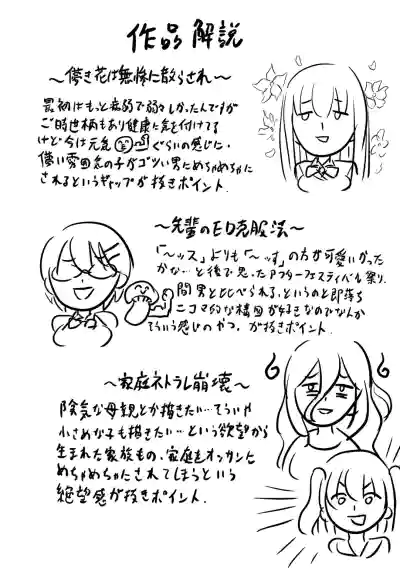 作品解説
～儚き花は無惨に散らされ～
最初はもっと病弱で弱々しかったんですが
ご時世柄もあり健康に気を付けてる
けど今は元気ぐらいの感じに.
儚い雰囲気の子がゴツい男にめちゃめちゃに
されるというギャップが抜きポイント.
～先輩のED克服法～
「～ッス」よりも「～っす」の方が可愛いかった
かな…と後で思ったアフターフェスティバル祭り.
間男と比べられる、というのと即落ち
ニコマ的な構図が好きなのでなんか
そういう感じのやつ、が抜きポイント.
～家庭ネトラレ崩壊～
陰気な母親とか描きたい…てういや
小さめな子も描きたい…という欲望から
生まれた家族もの、家庭をオッサンに
めちゃめちゃにされてしまうという
絶望感が抜きポイント.